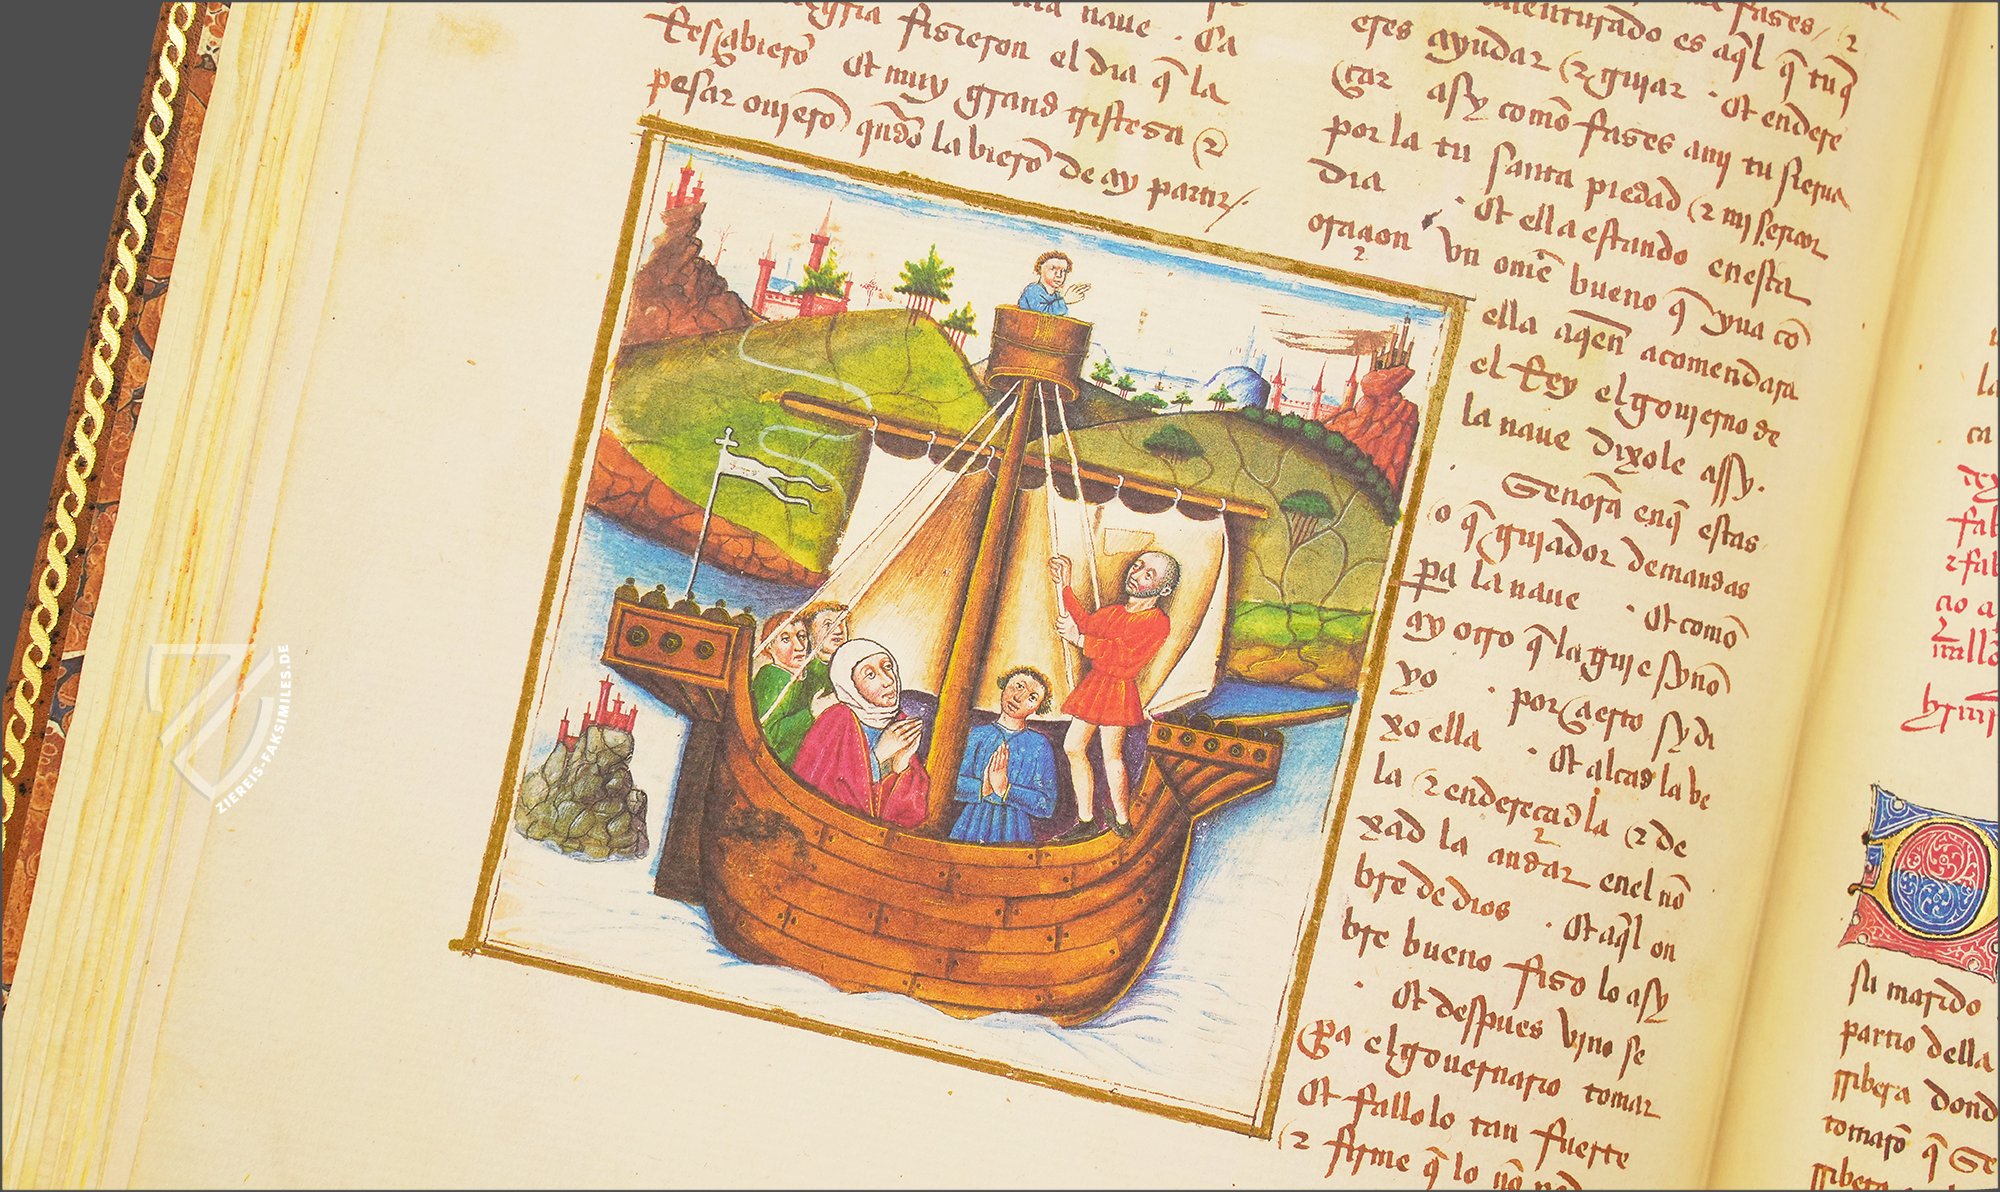 nave . Ca
Resçabierō Et muy figieron el dia q̄ la
pesar ouierō grand tristesa (τ
qun̄do la vierō de ay partir/.
eres ayudar (τ guiar . Et endere
çar asy comō fases amj tu sierua
por la tu santa piedad (τ mj señor
dia . Et ella estando enesta
oraçion vn omē bueno q̄ yua cō
ella aqen̄ acomendara
el Rey el gouierno de
la naue dixole assy.
Señora enq̄ estas
o q̄ guiador demandas
pa la naue . Et comō
ay otro q̄ la guie synō
yo . por çierto sy di
xo ella . Et alcad la ve
la (τ endereçad la (τ de
xad la andar enel nō
bre de dios . Et aq̄l on
bre bueno fiso lo asy
. Et despues vino se
pa el gouernario tomar
Et fallolo tan fuerte
(τ firme q̄ lo nō
su marido
partio della
ribera dond
tomarō q̄ se
ZIEREIS-FAKSIMILES.DE